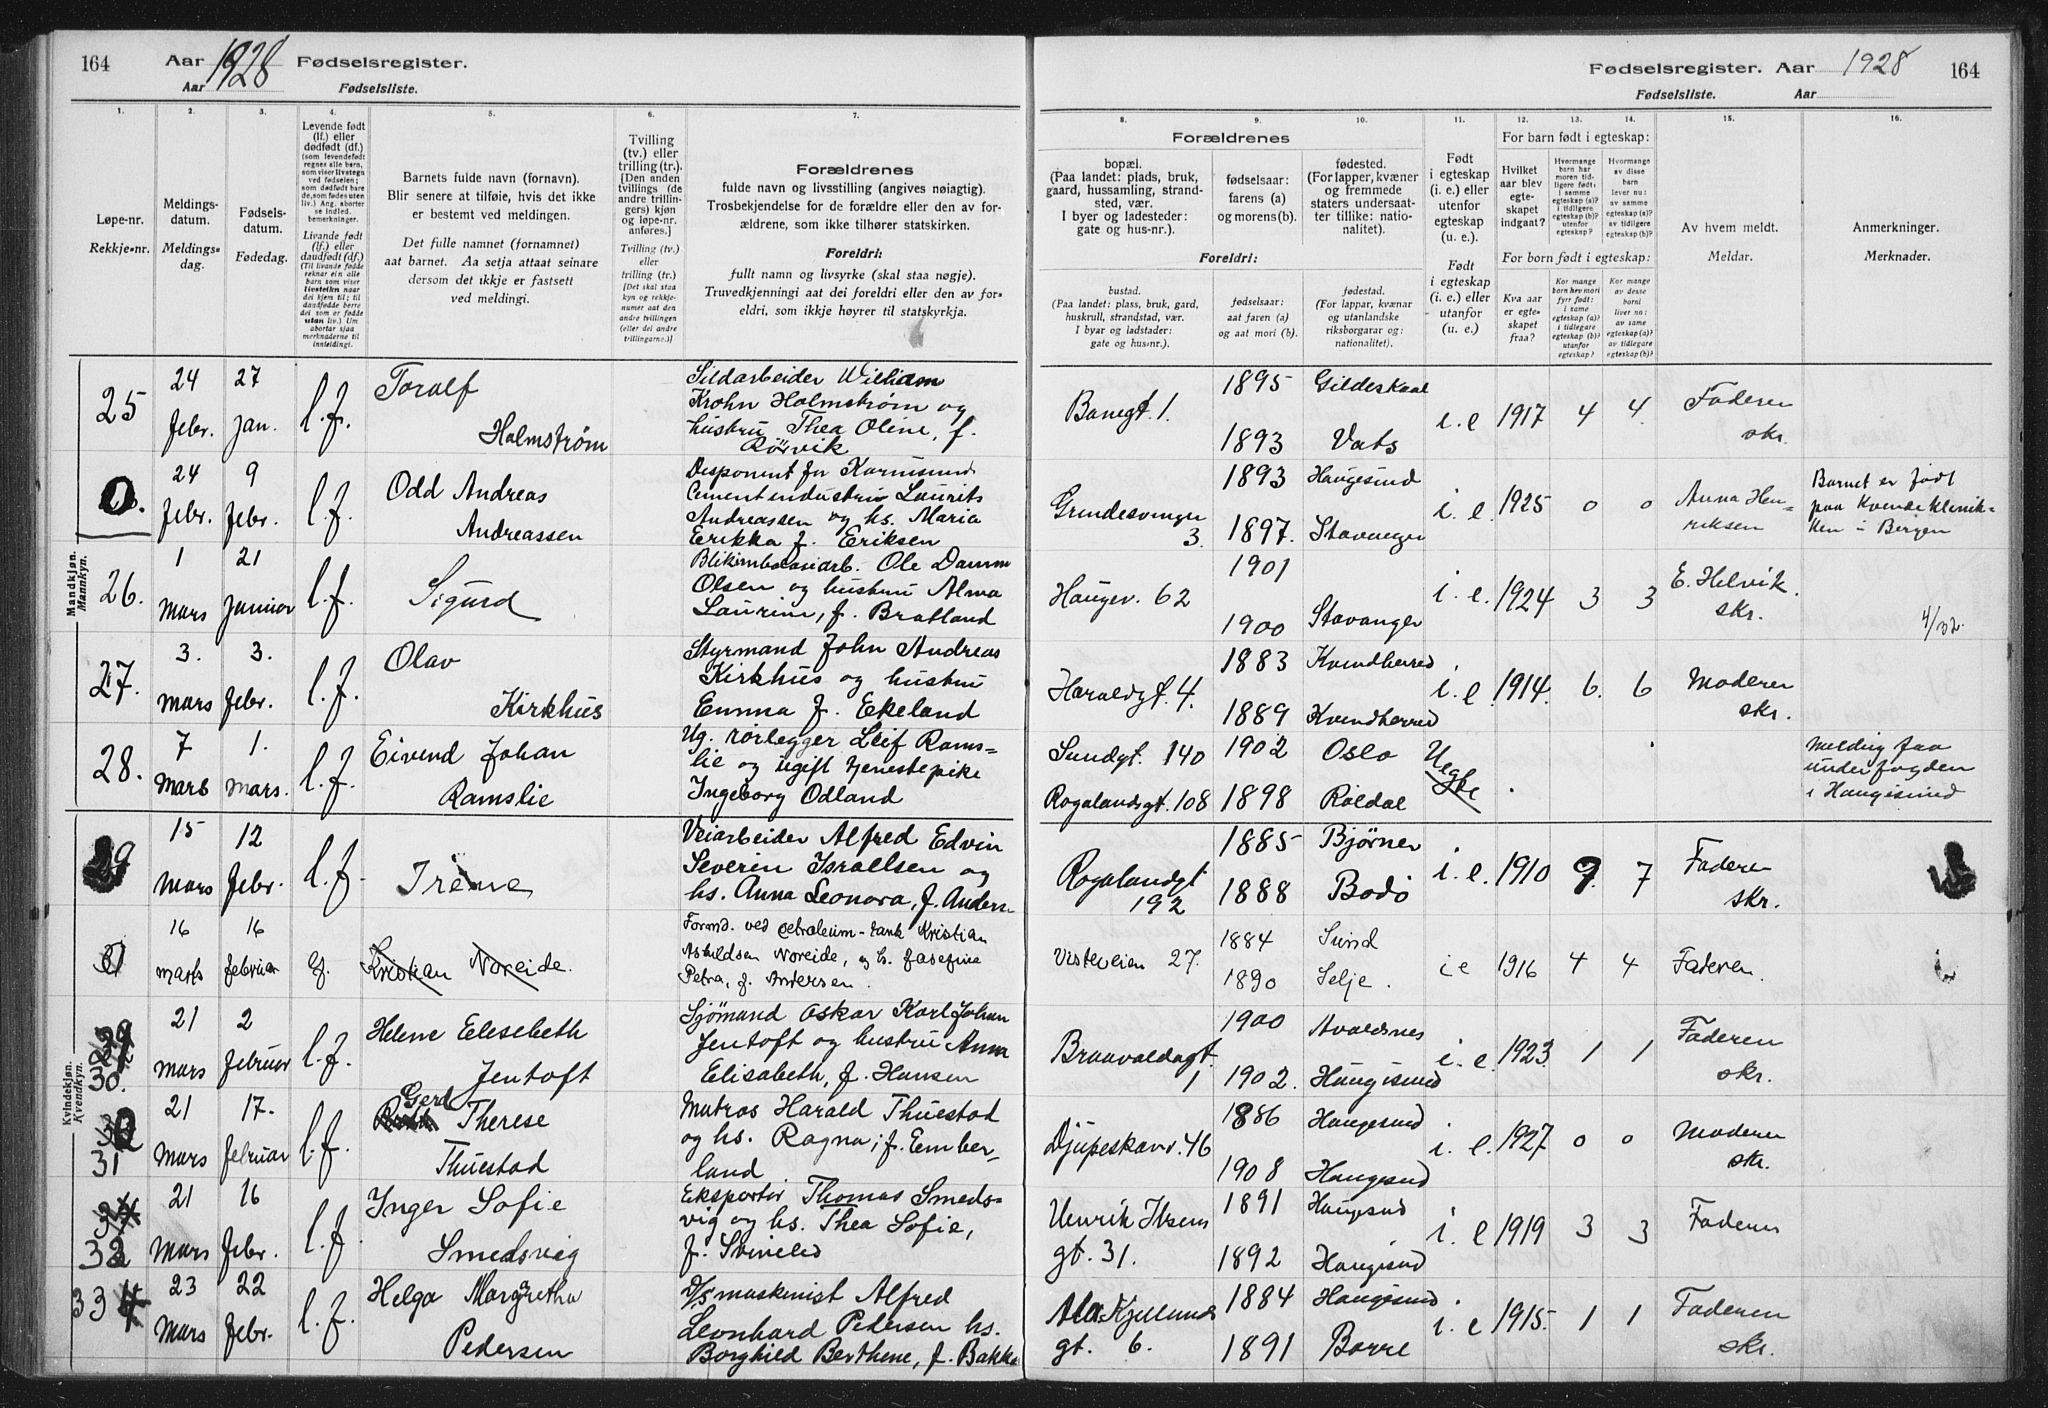 164 Aar 1928 Fødselsregister.
Aar Fødselsliste.
Fødselsregister. Aar 1928 164
Fødselsliste. Aar
1. 2. 3. 4. 5. 6. 7.
Løpe-nr.
Rekkje-nr.
Meldings-
datum.
Meldings-
dag.
Fødsels-
datum.
Fødedag.
Levende født
(lf.) eller
dødfødt (df.)
(som levendefødt
regnes alle barn,
som viser livstegn
ved fødselen;
som dødfødt bare
de, som fødes uten
liv.) Ang. aborter
se indled.
bemerkninger.
Livande født
(lf.) eller
daudfødt (df.)
(Til livande fødde
reknar ein alle
barn som viser
livsteikn naar
dei kjem til; til
daudfødde berre
dei som er fødde
utan liv.) Um
abortar sjaa
merknaderne til
innleidingi.
Barnets fulde navn (fornavn).
Blir senere at tilføie, hvis det ikke
er bestemt ved meldingen.
Det fulle namnet (fornamnet)
aat barnet. Aa setja attaat seinare
dersom det ikkje er fastsett
ved meldingi.
Tvilling
(tv.) eller
trilling (tr.).
[Den anden
tvillings (de
andre trillin-
gers) kjøn
og løpe-nr.
anføres.]
Tvilling (tv.)
eller
trilling (tr.)
[Det skal staa
kyn og rekkje-
numer aat den
andre tvillingen
(eller dei andre
trillingarne.)]
Forældrenes
fulde navn og livsstilling (angives nøiagtig).
Trosbekjendelse for de forældre eller den av for-
ældrene, som ikke tilhører statskirken.
Foreldri:
fullt namn og livsyrke (skal staa nøgje).
Truvedkjenningi aat dei foreldri eller den av for-
eldri, som ikkje høyrer til statskyrkja.
8. 9. 10. 11. 12. 13. 14. 15. 16.
Forældrenes
bopæl.
(Paa landet: plads, bruk,
gaard, hussamling, strand-
sted, vær.
I byer og ladesteder:
gate og hus-nr.).
fødselsaar:
farens (a)
og morens (b).
fødested.
(For lapper, kvæner
og fremmede
staters undersaat-
ter tillike: natio-
nalitet).
Foreldri:
bustad.
(Paa landet: plass, bruk, gard,
huskrull, strandstad, vær.
I byar og ladstader:
gate og hus-nr.).
fødselsaar:
aat faren (a)
og aat mori (b).
fødestad.
(For lappar, kvænar
og utanlandske
riksborgarar og:
nationalitet).
Født
i egteskap
(i. e.) eller
utenfor
egteskap
(u. e.).
Født
i egteskap
(i. e.) eller
utanfor
(u. e.).
For barn født i egteskap:
Hvilket
aar blev
egte-
skapet
indgaat?
Hvormange
barn har
moren tid-
ligere født:
i samme
egteskap (a)?
i tidligere
egteskap (b)?
utenfor
egteskap?
Hvormange
av disse
barn
lever nu:
av samme
egteskap (a)?
av tidligere
egteskap (b)?
For born født i egteskap:
Kva aar
er egte-
skapet
fraa?
Kor mange
born hev mori
fyrr født:
i same
egteskap (a)?
i tidlegare
egteskap (b)?
utanfor
egteskap?
Kor mange
av desse
borni
liver no:
av same
egteskap (a)?
av tidlegare
egteskap (b)?
Av hvem meldt.
Meldar.
Anmerkninger.
Merknader.
Mandkjøn.
Mannkyn.
25 24 febr. 27 jan. l.f. Toralf Holmstrøm
Sildarbeider William
Krohn Holmstrøm og
hustru Thea Oline, f.
Rörvik
Banegt. 1. 1895 Gildeskaal 1893 Vats i. e 1917 4 4. Faderen skr.
24 febr. 9 febr. l.f. Odd Andreas Andreassen
Disponent for Karmsund
Cementindustri Laurits
Andreassen og hs. Maria
Erikka f. Eriksen
3. 1893 Haugesund 1897. Stavanger i. e. 1925 0 0 Anna Hen-
riksen
Barnet er født
paa Kvindeklinik-
ken i Bergen
26. 1 mars 21 januar l.f. Sigurd
Ole Damm
Olsen og hustru Alma
Laurine, f. Bratland
Haugev. 62 1901 1900 Stavanger i. e. 1924 3 3 E. Helvik. skr. 4/32.
27. 3. mars 3. febr. l.f. Olav Kirkhus
Styrmand John Andreas
Kirkhus og hustru
Emma f. Ekeland
Haraldsgt. 4. 1883 Kvindherred 1889 Kvindherred i. e 1914. 6. 6 Moderen skr.
28. 7 mars 1. mars. l.f. Eivend Johan Ramslie
Ug. rørlegger Leif Rams-
lie og ugift tjenestepike
Ingeborg Odland
Sundgt. 140 1902 Oslo Uegte
Rogalandsgt. 108 1898 Röldal
Melding fra
underfogden
i Haugesund
Kvindekjøn.
Kvendkyn.
29 15 mars 12 febr. l.f. Irene
Veiarbeider Alfred Edvin
Severin Israelsen og
hs. Anna Leonora, f. Anders
Rogalandgt 192 1885 Bjørnør 1888 Bodö i. e. 1910 9. 7 Faderen skr.
16 marts 16 februar Kristian Noreide.
Formd. ved petroleum-tank Kristian
Noreide, og h. Josefine
Petra, f. Andersen.
Visteveien 27. 1884 Sund 1890 Selje. i e 1916 4 4 Faderen.
30. 21 mars 2 februar l.f. Helene Elisebeth Jentoft
Sjømand Oskar Karl Johan
Jentoft og hustru Anna
Elisabeth, f. Hansen
Braavaldsgt. 1 1900 Avaldsnes 1902. Haugesund i. e. 1923. 1 1 Faderen skr.
31 21 mars 17. februar l.f. Gerd Therese Thuestad
Matros Harald Thuestad
og hs. Ragna, f. Ember-
land
Djupeskarv. 46 1886 Haugesund 1908 Haugesund i. e. 1927 0 0 Moderen skr.
32 21 mars 16 febr. l.f. Inger Sofie Smedsvig
Eksportør Thomas Smeds-
vig og hs. Thea Sofie,
f. Svineled
Henrik Ibsens
gt. 31. 1891 Haugesund 1892 Haugesund i. e 1919 3 3 Faderen
33 23 mars 22 febr. l.f. Helga Margretha Pedersen
D/s maskinist Alfred
Leonhard Pedersen hs.
Borghild Berthene, f. Bakke
Alex. Kjellands
gt. 6. 1884 Haugesund 1891 Borre i. e 1915. 1 1 Faderen skr.